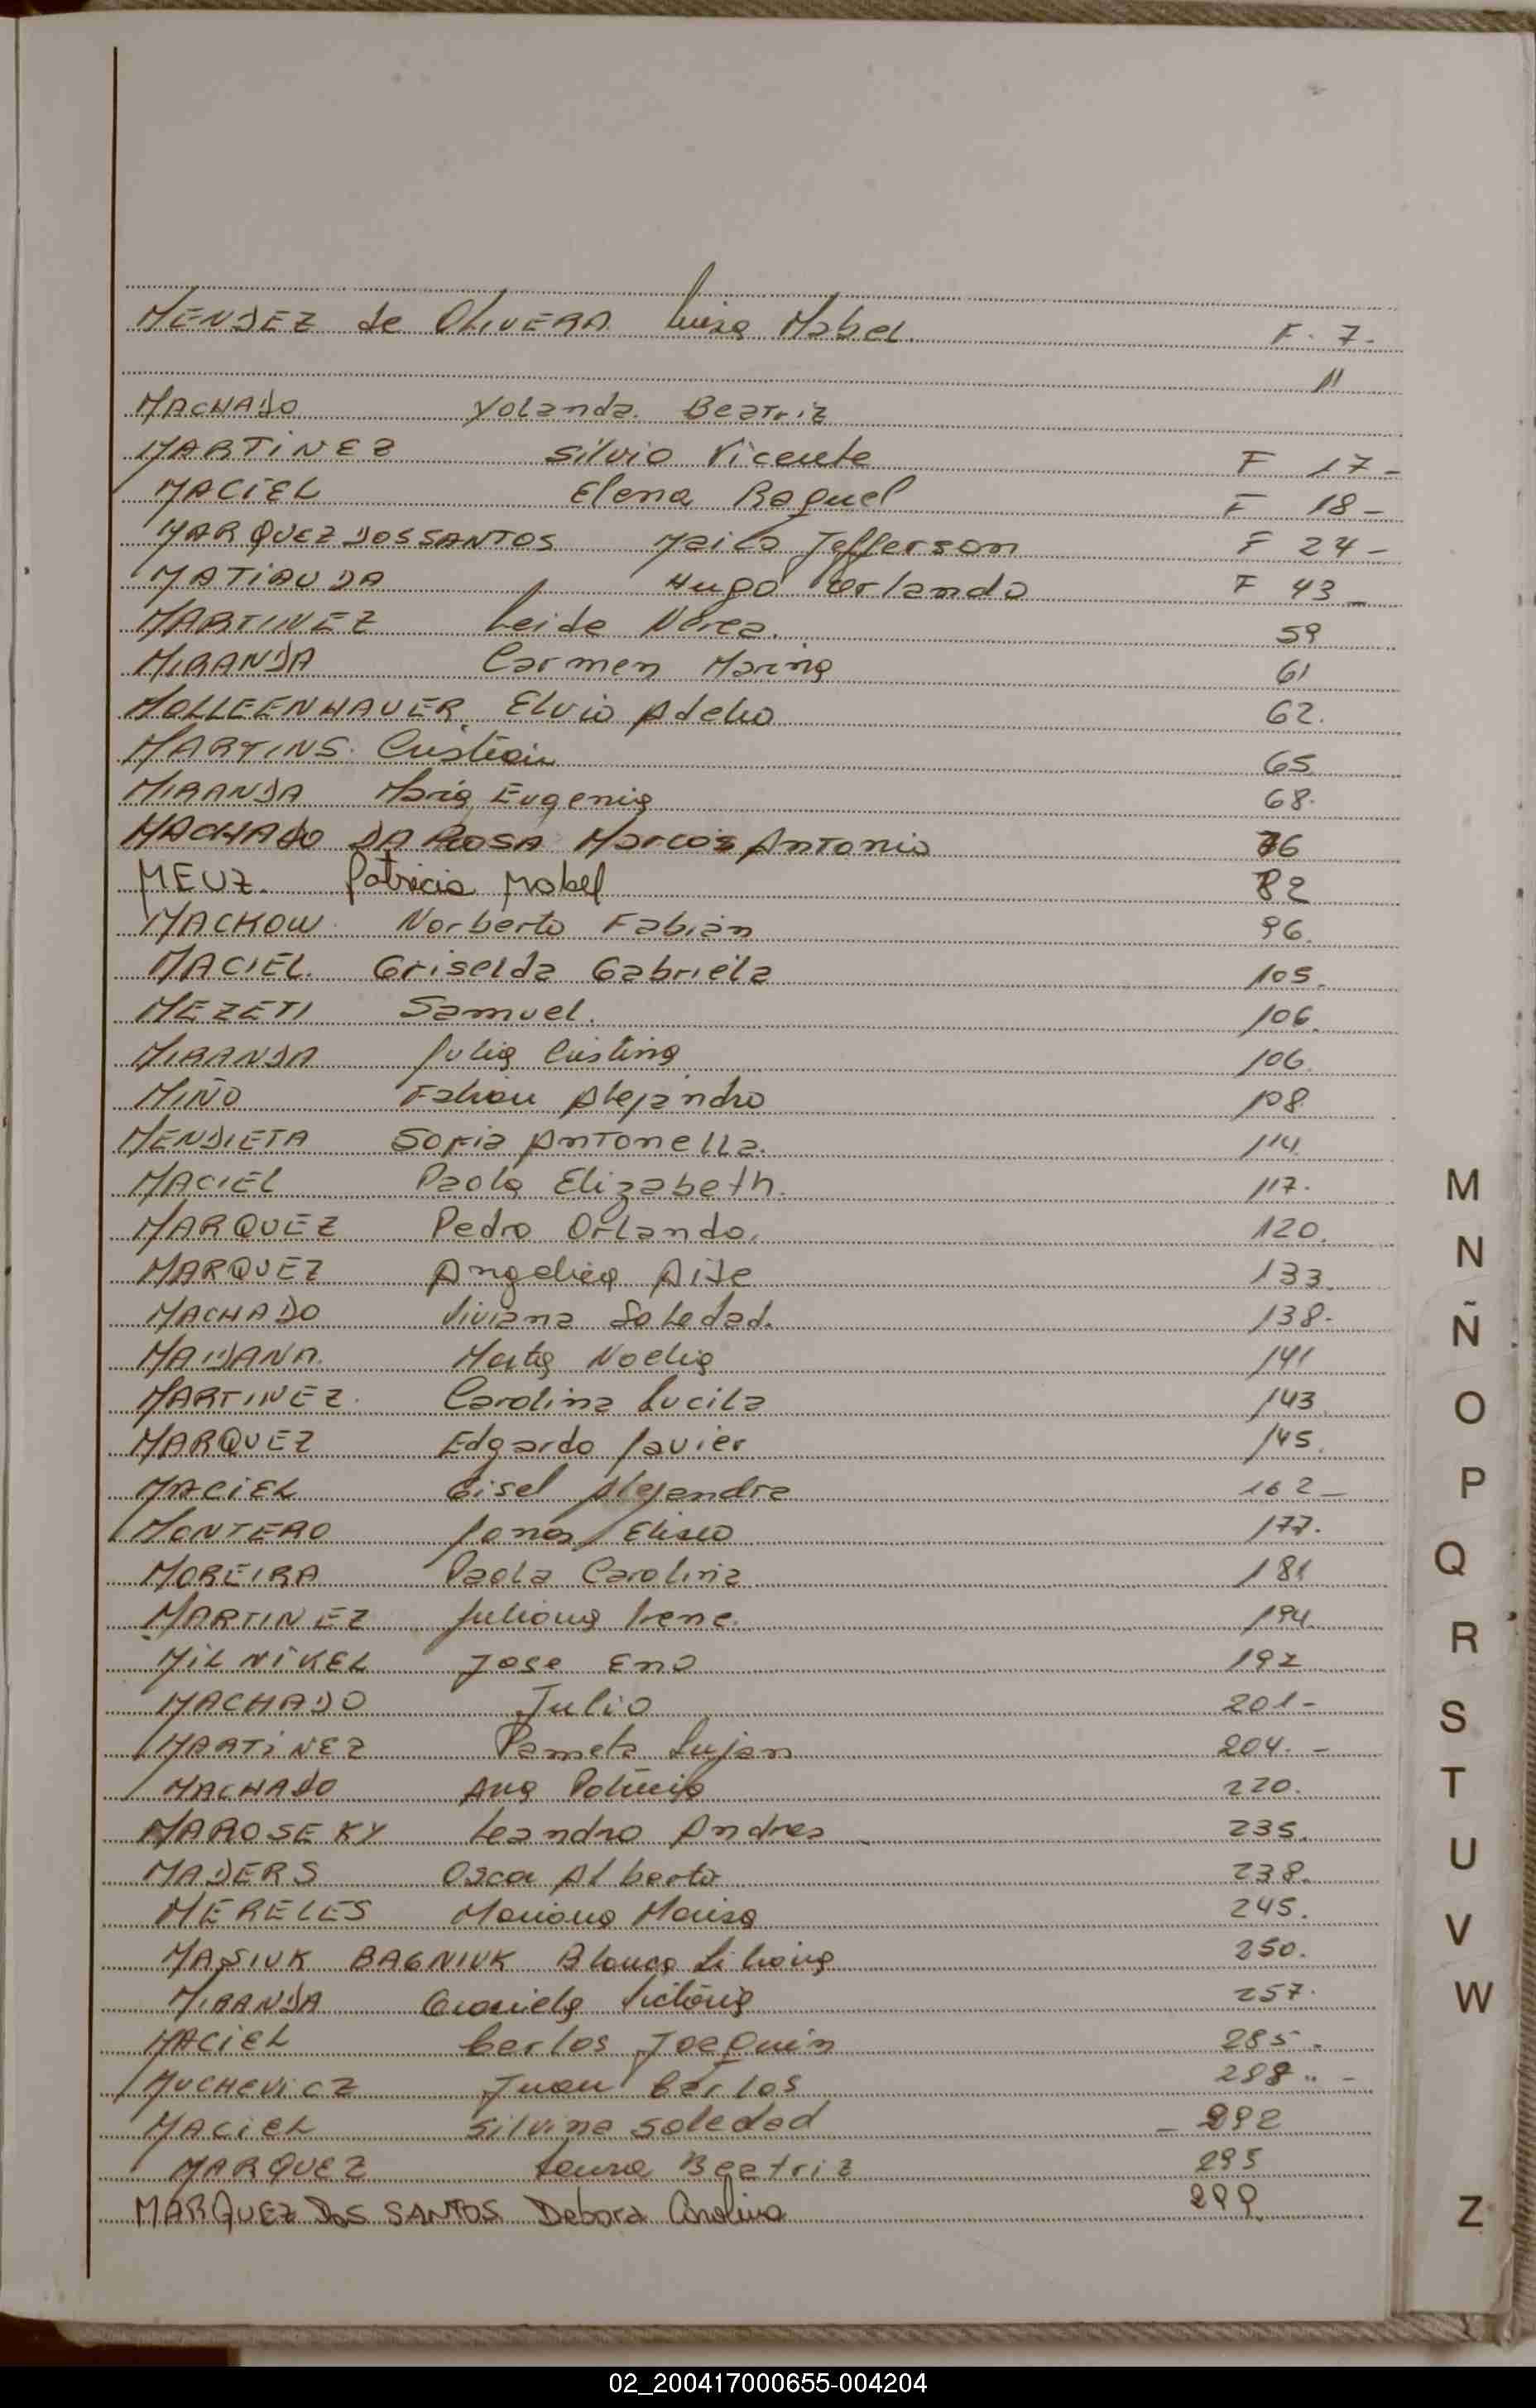 MENDEZ de OLIVERA Luisa Mabel. F. 7.-
MACHADO Yolanda Beatriz 11
MARTiNEZ Silvio Vicente F 17-
MACiEL Elena Raquel F 18-
MARQUEZ DOS SANTOS Jefferson F 24-
MATiAUDA Hugo Orlando F 43-
MARTINEZ Leide Nerea. 59
MIRANDA Carmen Marina 61
MOLLEENHAUER Elvio Adelio 62.
MARTINS. Cristian 65
MIRANDA Maria Eugenia 68.
MACHADO DA ROSA Marcos Antonio 76
MEUZ. Patricia Mabel 82
MACKOW Norberto Fabián 96.
MACIEL. Griselda Gabriela 105.
MEZETI Samuel. 106.
MIRANDA Julia Cristina 106.
MIÑO Fabian Alejandro 108
MENDIETA Sofia Antonella. 114
MACIEL Paola Elizabeth. 117.
MARQUEZ Pedro Orlando. 120.
MARQUEZ Angelica 133.
MACHADO Viviana Soledad. 138.
MAIDANA. Marta Noelia 141
MARTINEZ. Carolina Lucila 143
MARQUEZ Edgardo Javier 145.
MACiEL Gisel Alejandra 162-
MONTERO Jonas Eliseo 177.
MOREIRA Paola Carolina 181
MARTINEZ Juliana Irene. 194.
MiLNiKEL Jose Eno 192
MACHADO Julio 201-
MARTiNEZ Pamela Lujan 204.-
MACHADO Ana Patricia 220.
MAROSEKY Leandro Andres 235.
MADERS Oscar Alberto 238.
MERELES Mariana Marisa 245.
MASIUK BAGNIUK Blanca Liliana 250.
MIRANDA Graciela Victoria 257.
MACiEL Carlos Joaquin 285.
MUCHEViCZ Juan Carlos 288..-
MACiEL Silvina Soledad - 292
MARQUEZ Laura Beatriz 295
MARQUEZ DOS SANTOS Debora Carolina 299
M
N
Ñ
O
P
Q
R
S
T
U
V
W
Z
02_200417000655-004204